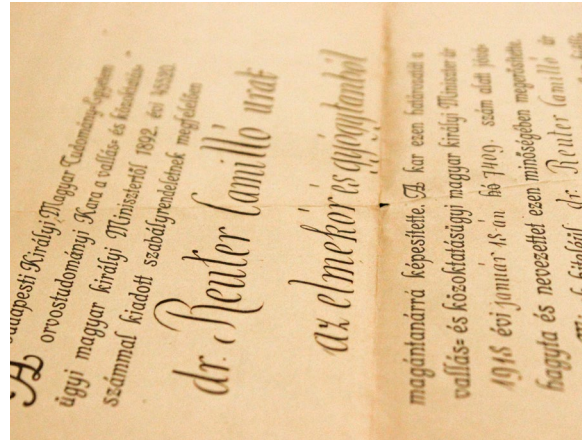 A Budapesti Királyi Magyar Tudomány-Egyetem
orvostudományi Kara a vallás= és közoktatás=
ügyi magyar királyi Minisztertől 1892. évi 45520.
számmal kiadott szabályrendeletnek megfelelően
dr. Reuter Camilló urat
az elmekór és gyógytanból
magántanárrá képesítette. A kar ezen határozatát a
vallás= és közoktatásügyi magyar királyi Miniszter úr
1918 évi január 18-án hó 7409. szám alatt jóvá=
hagyta és nevezettet ezen minőségében megerősítette.
dr. Reuter Camilló úr